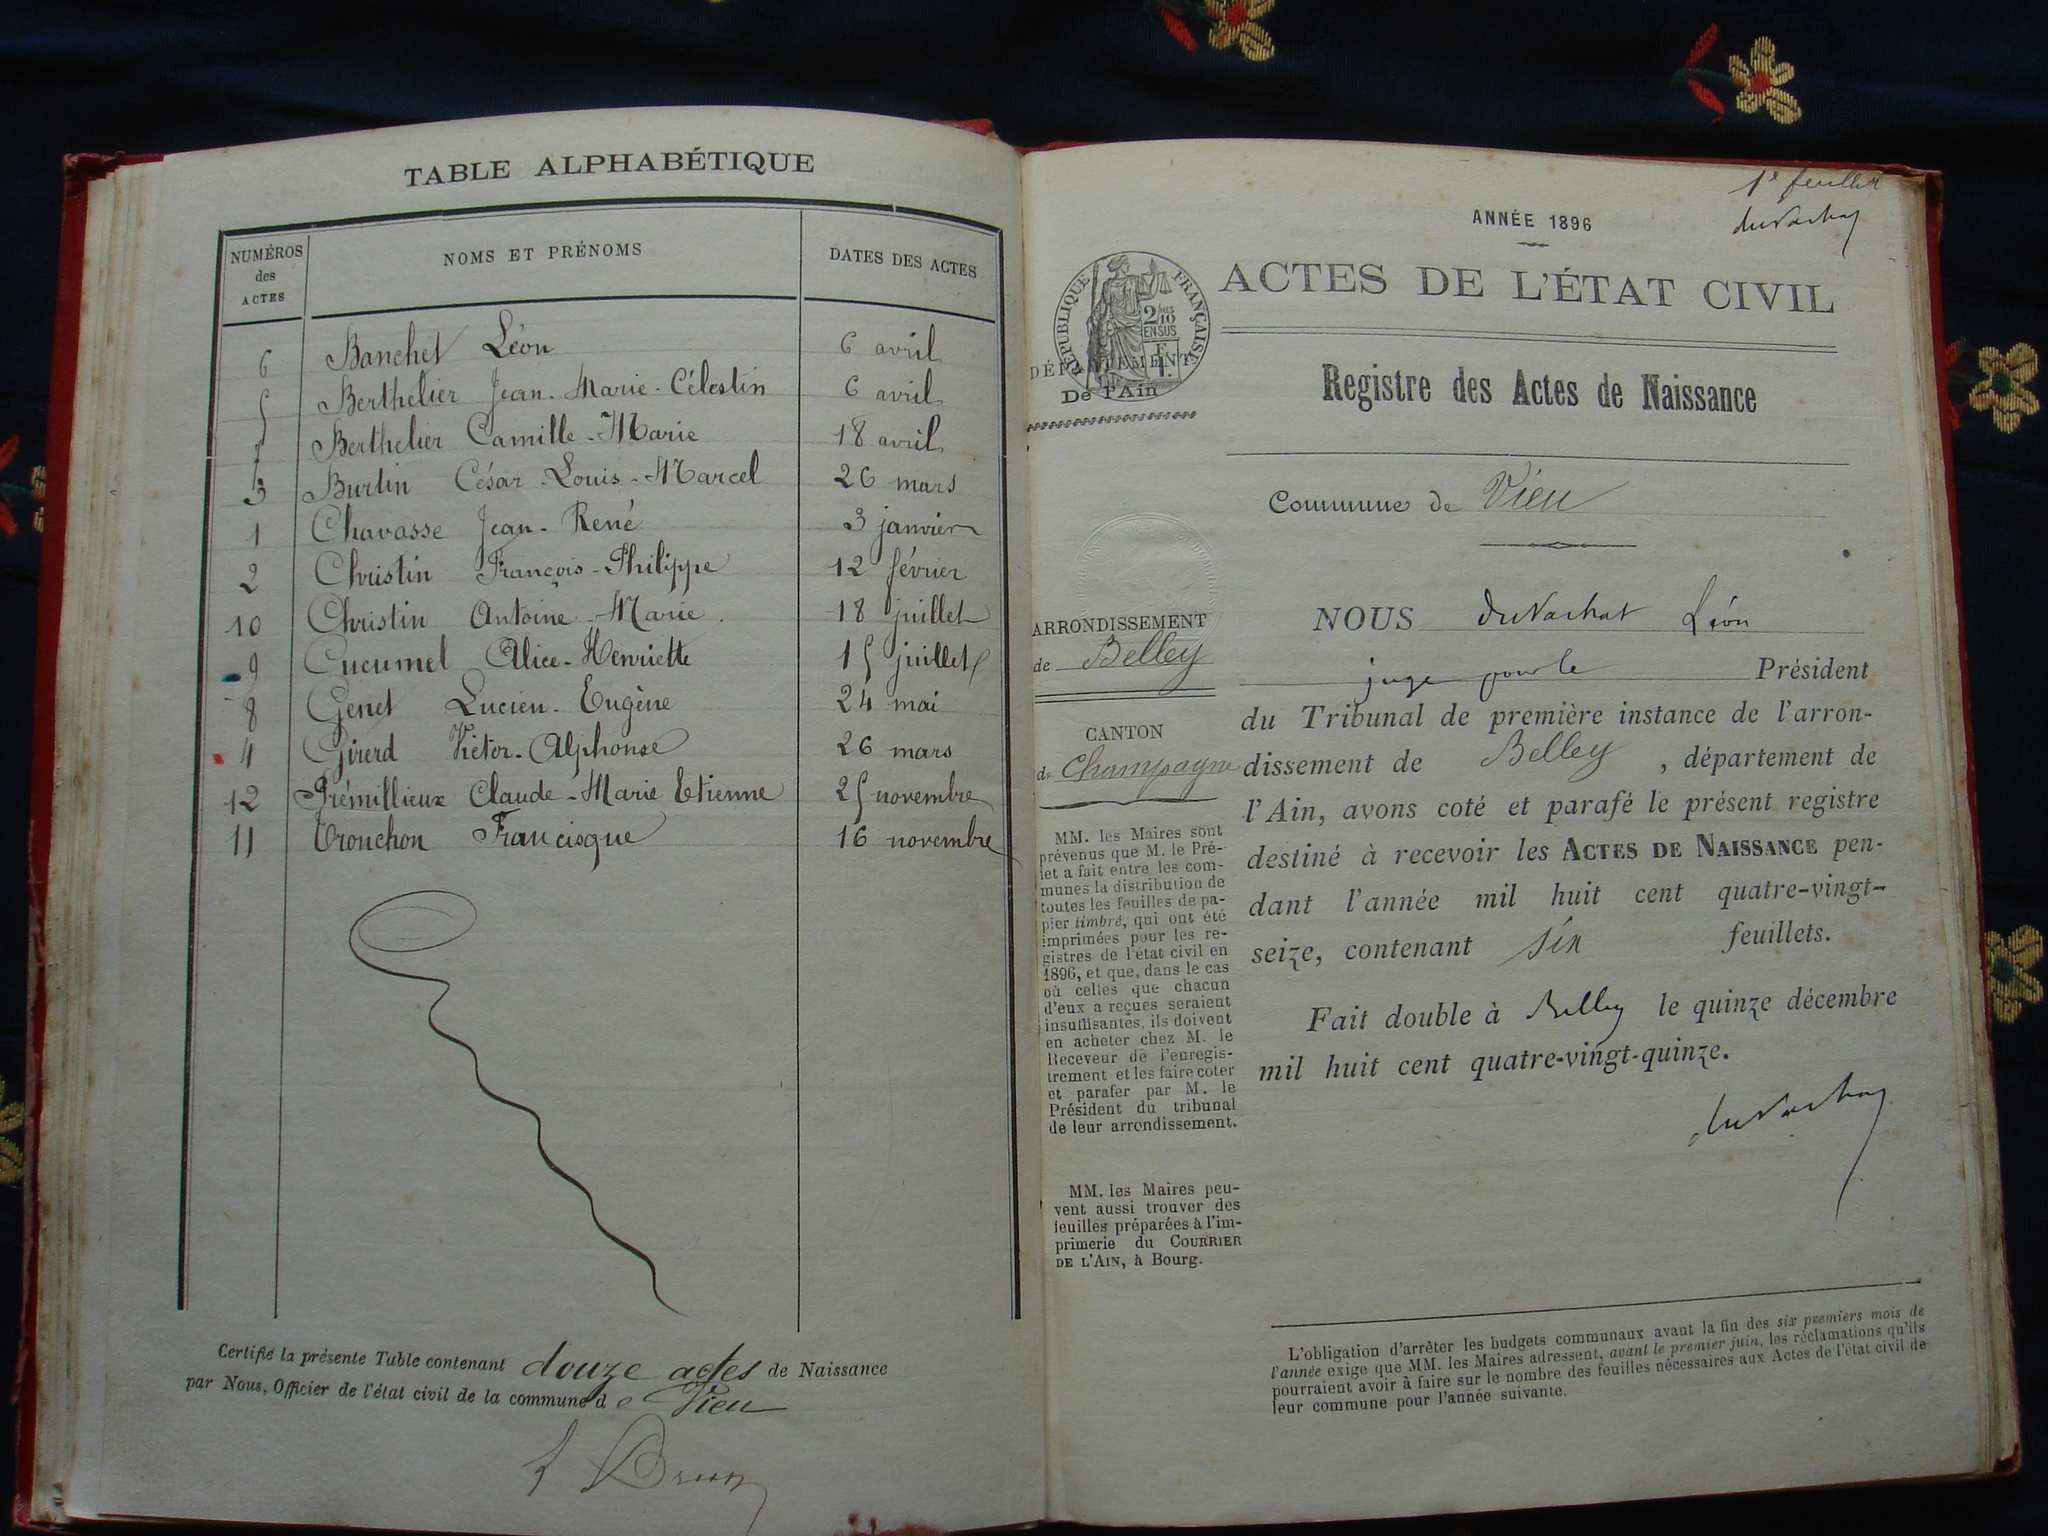 TABLE ALPHABÉTIQUE
NUMÉROS des ACTES NOMS ET PRÉNOMS DATES DES ACTES
6 Banchet Léon 6 avril
5 Berthelier Jean-Marie-Célestin 6 avril
7 Berthelier Camille-Marie 18 avril
3 Burtin César-Louis-Marcel 26 mars
1 Chavasse Jean-René 3 janvier
2 Christin François-Philippe 12 février
10 Christin Antoine-Marie 18 juillet
9 Cucumel Alice-Henriette 15 juillet
8 Genet Lucien-Eugène 24 mai
4 Girerd Victor-Alphonse 26 mars
12 Prémillieux Claude-Marie Etienne 25 novembre
11 Tronchon Francisque 16 novembre
Certifié la présente Table contenant douze actes de Naissance
par Nous, Officier de l'état civil de la commune de Vieu
1e feuillet
duVachat
ANNÉE 1896
ACTES DE L'ÉTAT CIVIL
RÉPUBLIQUE FRANÇAISE
2/10 EN SUS
DÉPARTEMENT
De l'Ain
Registre des Actes de Naissance
Commune de Vieu
ARRONDISSEMENT
de Belley
CANTON
de Champagne
MM. les Maires sont
prévenus que M. le Pré-
fet a fait entre les com-
munes la distribution de
toutes les feuilles de pa-
pier timbré, qui ont été
imprimées pour les re-
gistres de l'état civil en
1896, et que, dans le cas
où celles que chacun
d'eux a reçues seraient
insuffisantes, ils doivent
en acheter chez M. le
Receveur de l'enregis-
trement et les faire coter
et parafer par M. le
Président du tribunal
de leur arrondissement.
MM. les Maires peu-
vent aussi trouver des
feuilles préparées à l'im-
primerie du COURRIER
DE L'AIN, à Bourg.
NOUS duVachat Léon
juge pour le Président
du Tribunal de première instance de l'arron-
dissement de Belley, département de
l'Ain, avons coté et parafé le présent registre
destiné à recevoir les ACTES DE NAISSANCE pen-
dant l'année mil huit cent quatre-vingt-
seize, contenant six feuillets.
Fait double à Belley le quinze décembre
mil huit cent quatre-vingt-quinze.
duVachat
L'obligation d'arrêter les budgets communaux avant la fin des six premiers mois de
l'année exige que MM. les Maires adressent, avant le premier juin, les réclamations qu'ils
pourraient avoir à faire sur le nombre des feuilles nécessaires aux Actes de l'état civil de
leur commune pour l'année suivante.